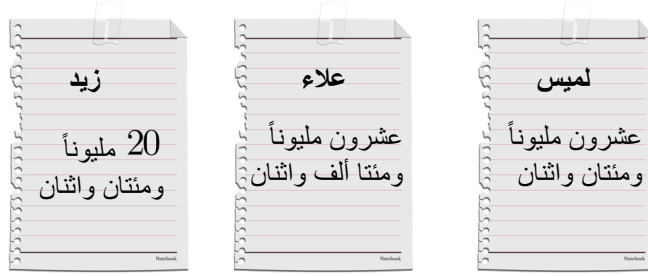 لميس
عشرون مليوناً
ومئتان واثنان
Notebook
علاء
عشرون مليوناً
ومئتا ألف واثنان
Notebook
زيد
20 مليوناً
ومئتان واثنان
Notebook